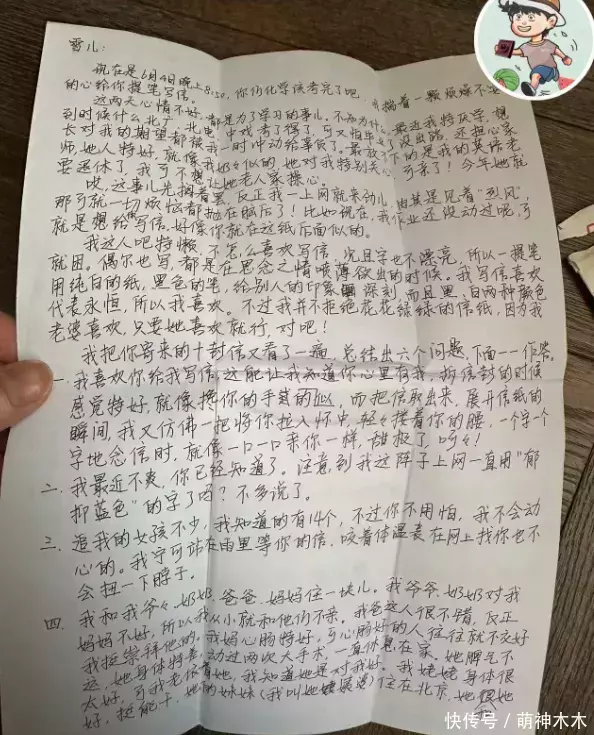 雪儿:
现在是6月4日晚上8:50,你们化学该考完了吧。我揣着一颗烦燥不安
的心给你提笔写信。
这两天心情不好,都是为了学习的事儿。不知为什么,最近我特厌学,想
到时候什么北广、北电、中戏考了得了,可又怕毕业了没出路,还担心家
长对我的期望都被我一时冲动给辜负了。最放不下的是我的英语老
师,她人特好,就像我奶奶似的,她对我特别关心,可亲了!今年她就
要退休了,我可不想让她老人家操心。
哎,这事儿先搁着罢,反正我一上网就来劲儿,尤其是见着“烈风”,
那可就一切烦恼都抛在脑后了!比如现在,我作业还没动过呢,可
就是想给你写信,好像你就在这纸后面似的。
我这人吧特懒,不怎么喜欢写信,况且字也不漂亮,所以一提笔
就困。偶尔也写,都是在思念之情喷薄欲出的时候。我写信喜欢
用纯白的纸,黑色的笔,给别人的印象深刻,而且黑、白两种颜色
代表永恒,所以我喜欢。不过我并不拒绝花花绿绿的信纸,因为我
老婆喜欢,只要她喜欢就行,对吧!
我把你寄来的十封信又看了一遍,总结出六个问题,下面一一作答。
一.我喜欢你给我写信,这能让我知道你心里有我,拆信封的时候
感觉特好,就像挽你的手一样的,而把信取出来,展开信纸的
瞬间,我又仿佛一把将你拉入怀中,轻轻搂着你的腰,一个字一个
字地念信时,就像一口一口亲你一样,甜极了,呵呵!
二.我最近不爽,你已经知道了。注意到我这阵子上网一直用“郁
抑蓝色”的字了吗?不多说了。
三.追我的女孩不少,我知道的有14个,不过你不用怕,我不会动
心的。我宁可站在雨里等你的信,咬着体温表在网上找你也不
会扭一下脖子。
四.我和我爷爷、奶奶、爸爸、妈妈住一块儿。我爷爷、奶奶对我
妈妈不好,所以我从小就和他们不亲。我爸这人很不错,反正
我挺崇拜他的。我妈心肠特好,可心肠好的人往往就不交好
运,她身体特差,动过两次大手术,一直休息在家。她脾气不
太好,可我老依着她,我知道她是对我好。我姥姥身体很
好,挺能干,她的妹妹(我叫她姨姥婆)住在北京,她跟她
快传号/萌神木木